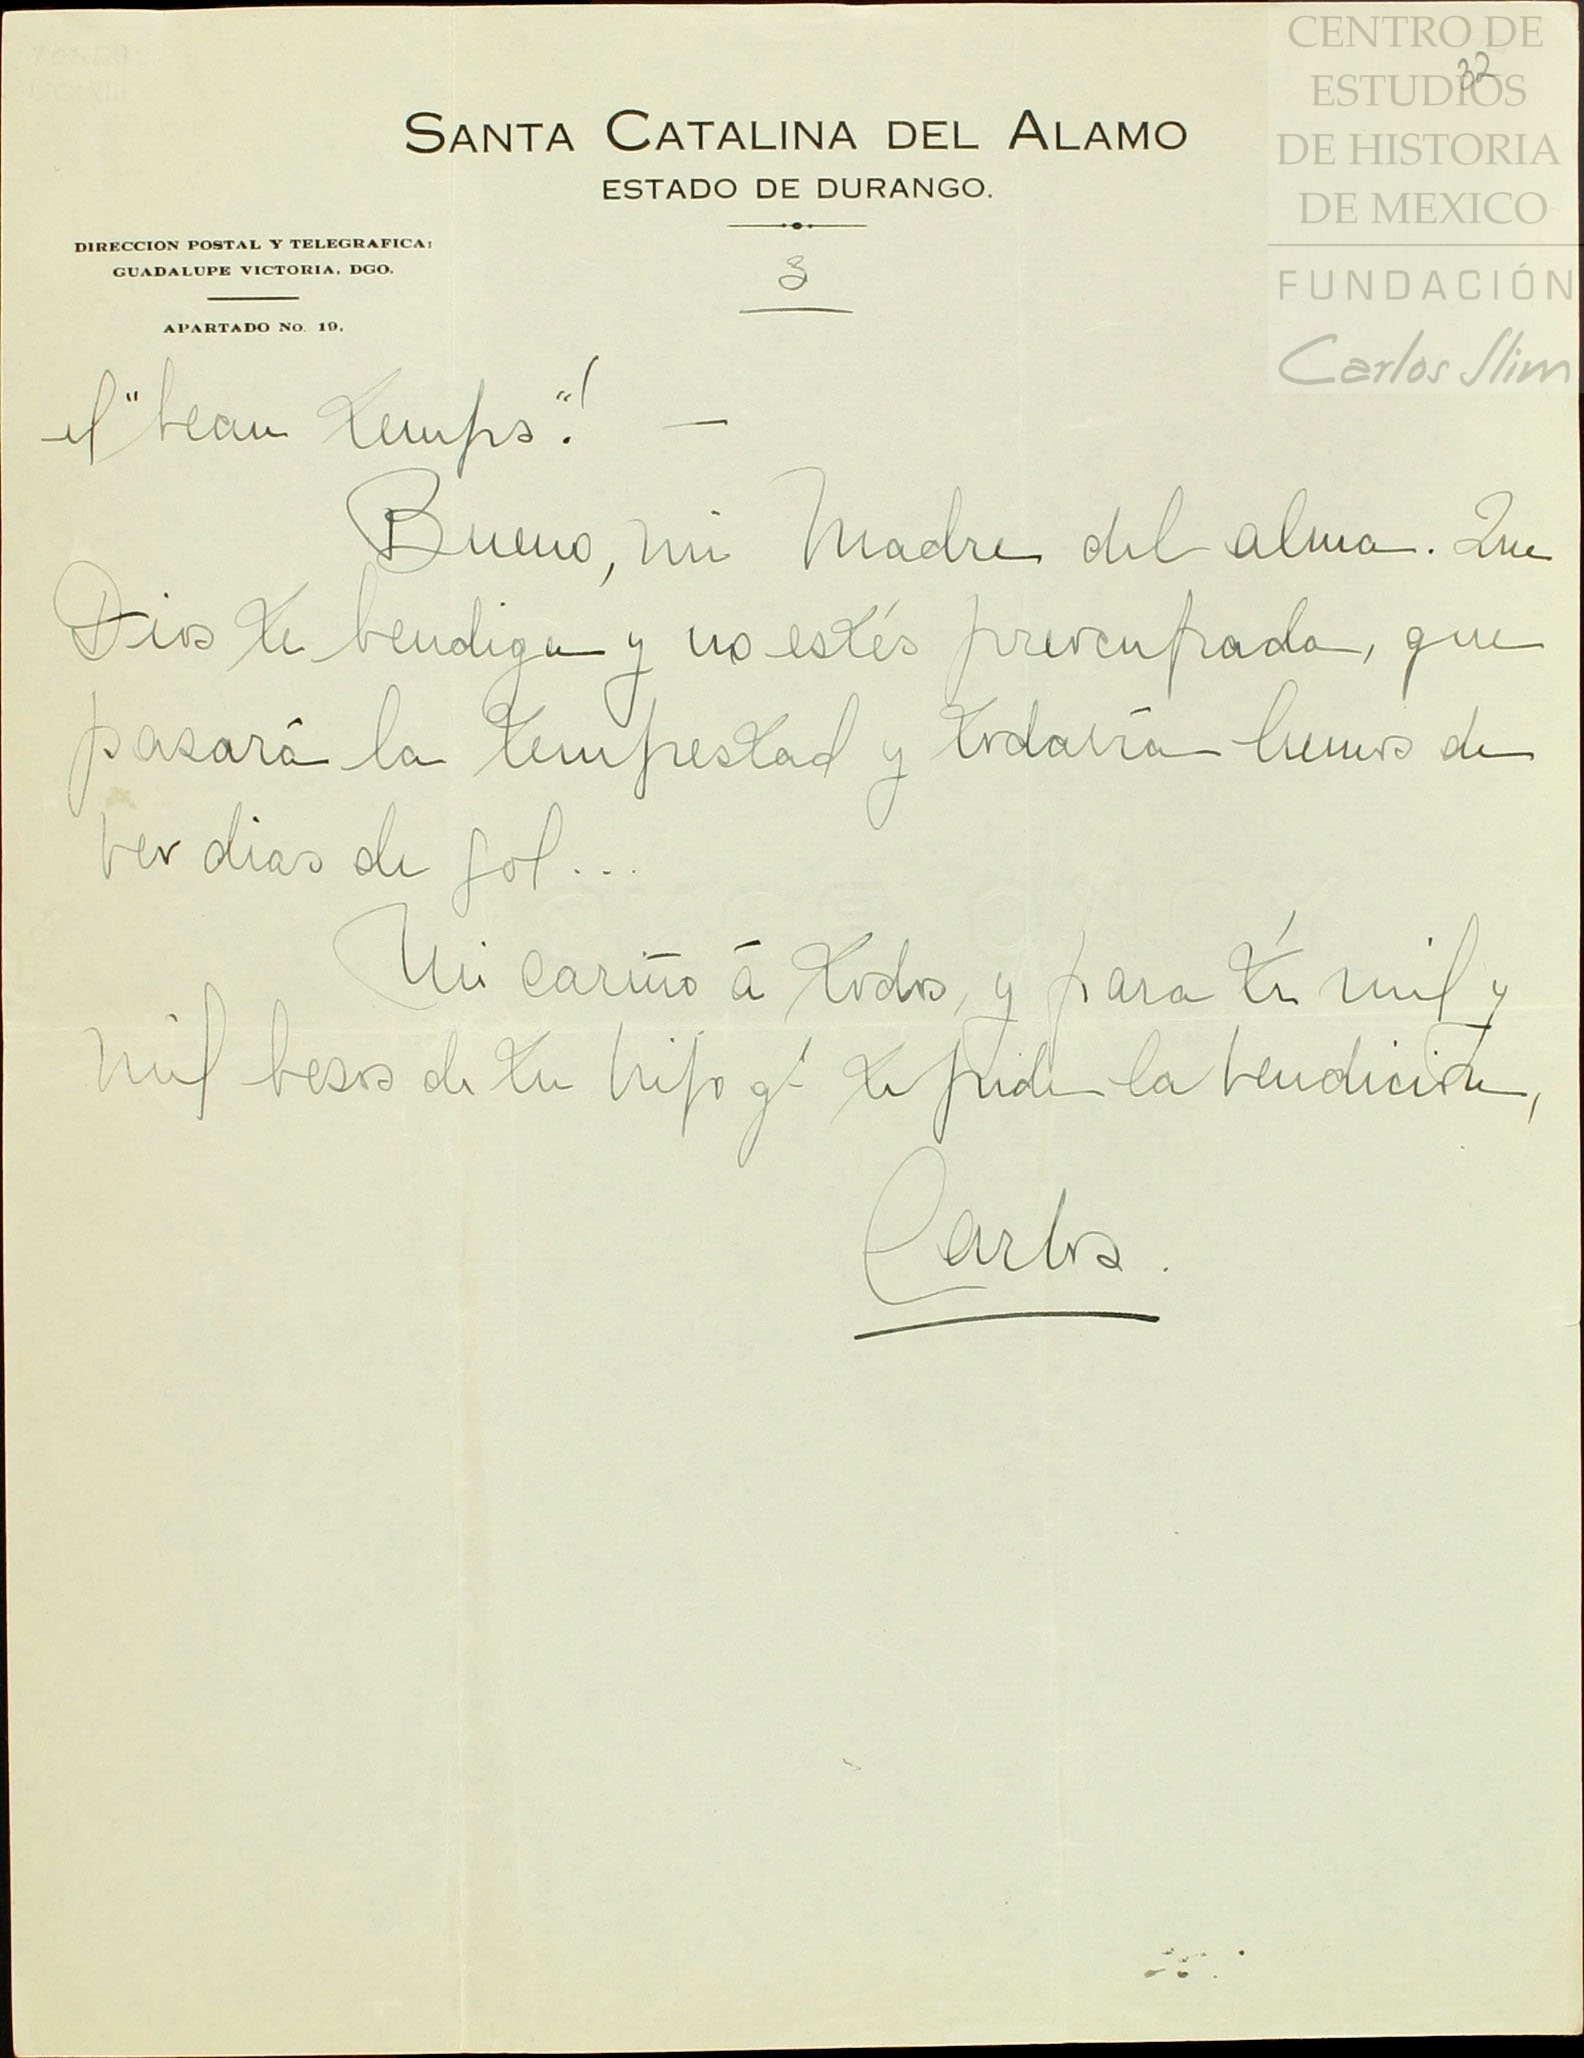 CENTRO DE
ESTUDIOS
DE HISTORIA
DE MEXICO
FUNDACIÓN
Carlos Slim
32
SANTA CATALINA DEL ALAMO
ESTADO DE DURANGO.
DIRECCION POSTAL Y TELEGRAFICA:
GUADALUPE VICTORIA, DGO.
APARTADO No. 19.
3
el "beau temps"! —
Bueno, mi Madre del alma. Que
Dios te bendiga y no estés preocupada, que
pasará la tempestad y todavía hemos de
ver dias de sol...
Mi cariño á todos, y para tí mil y
mil besos de tu hijo q' te pide la bendición,
Carlos.